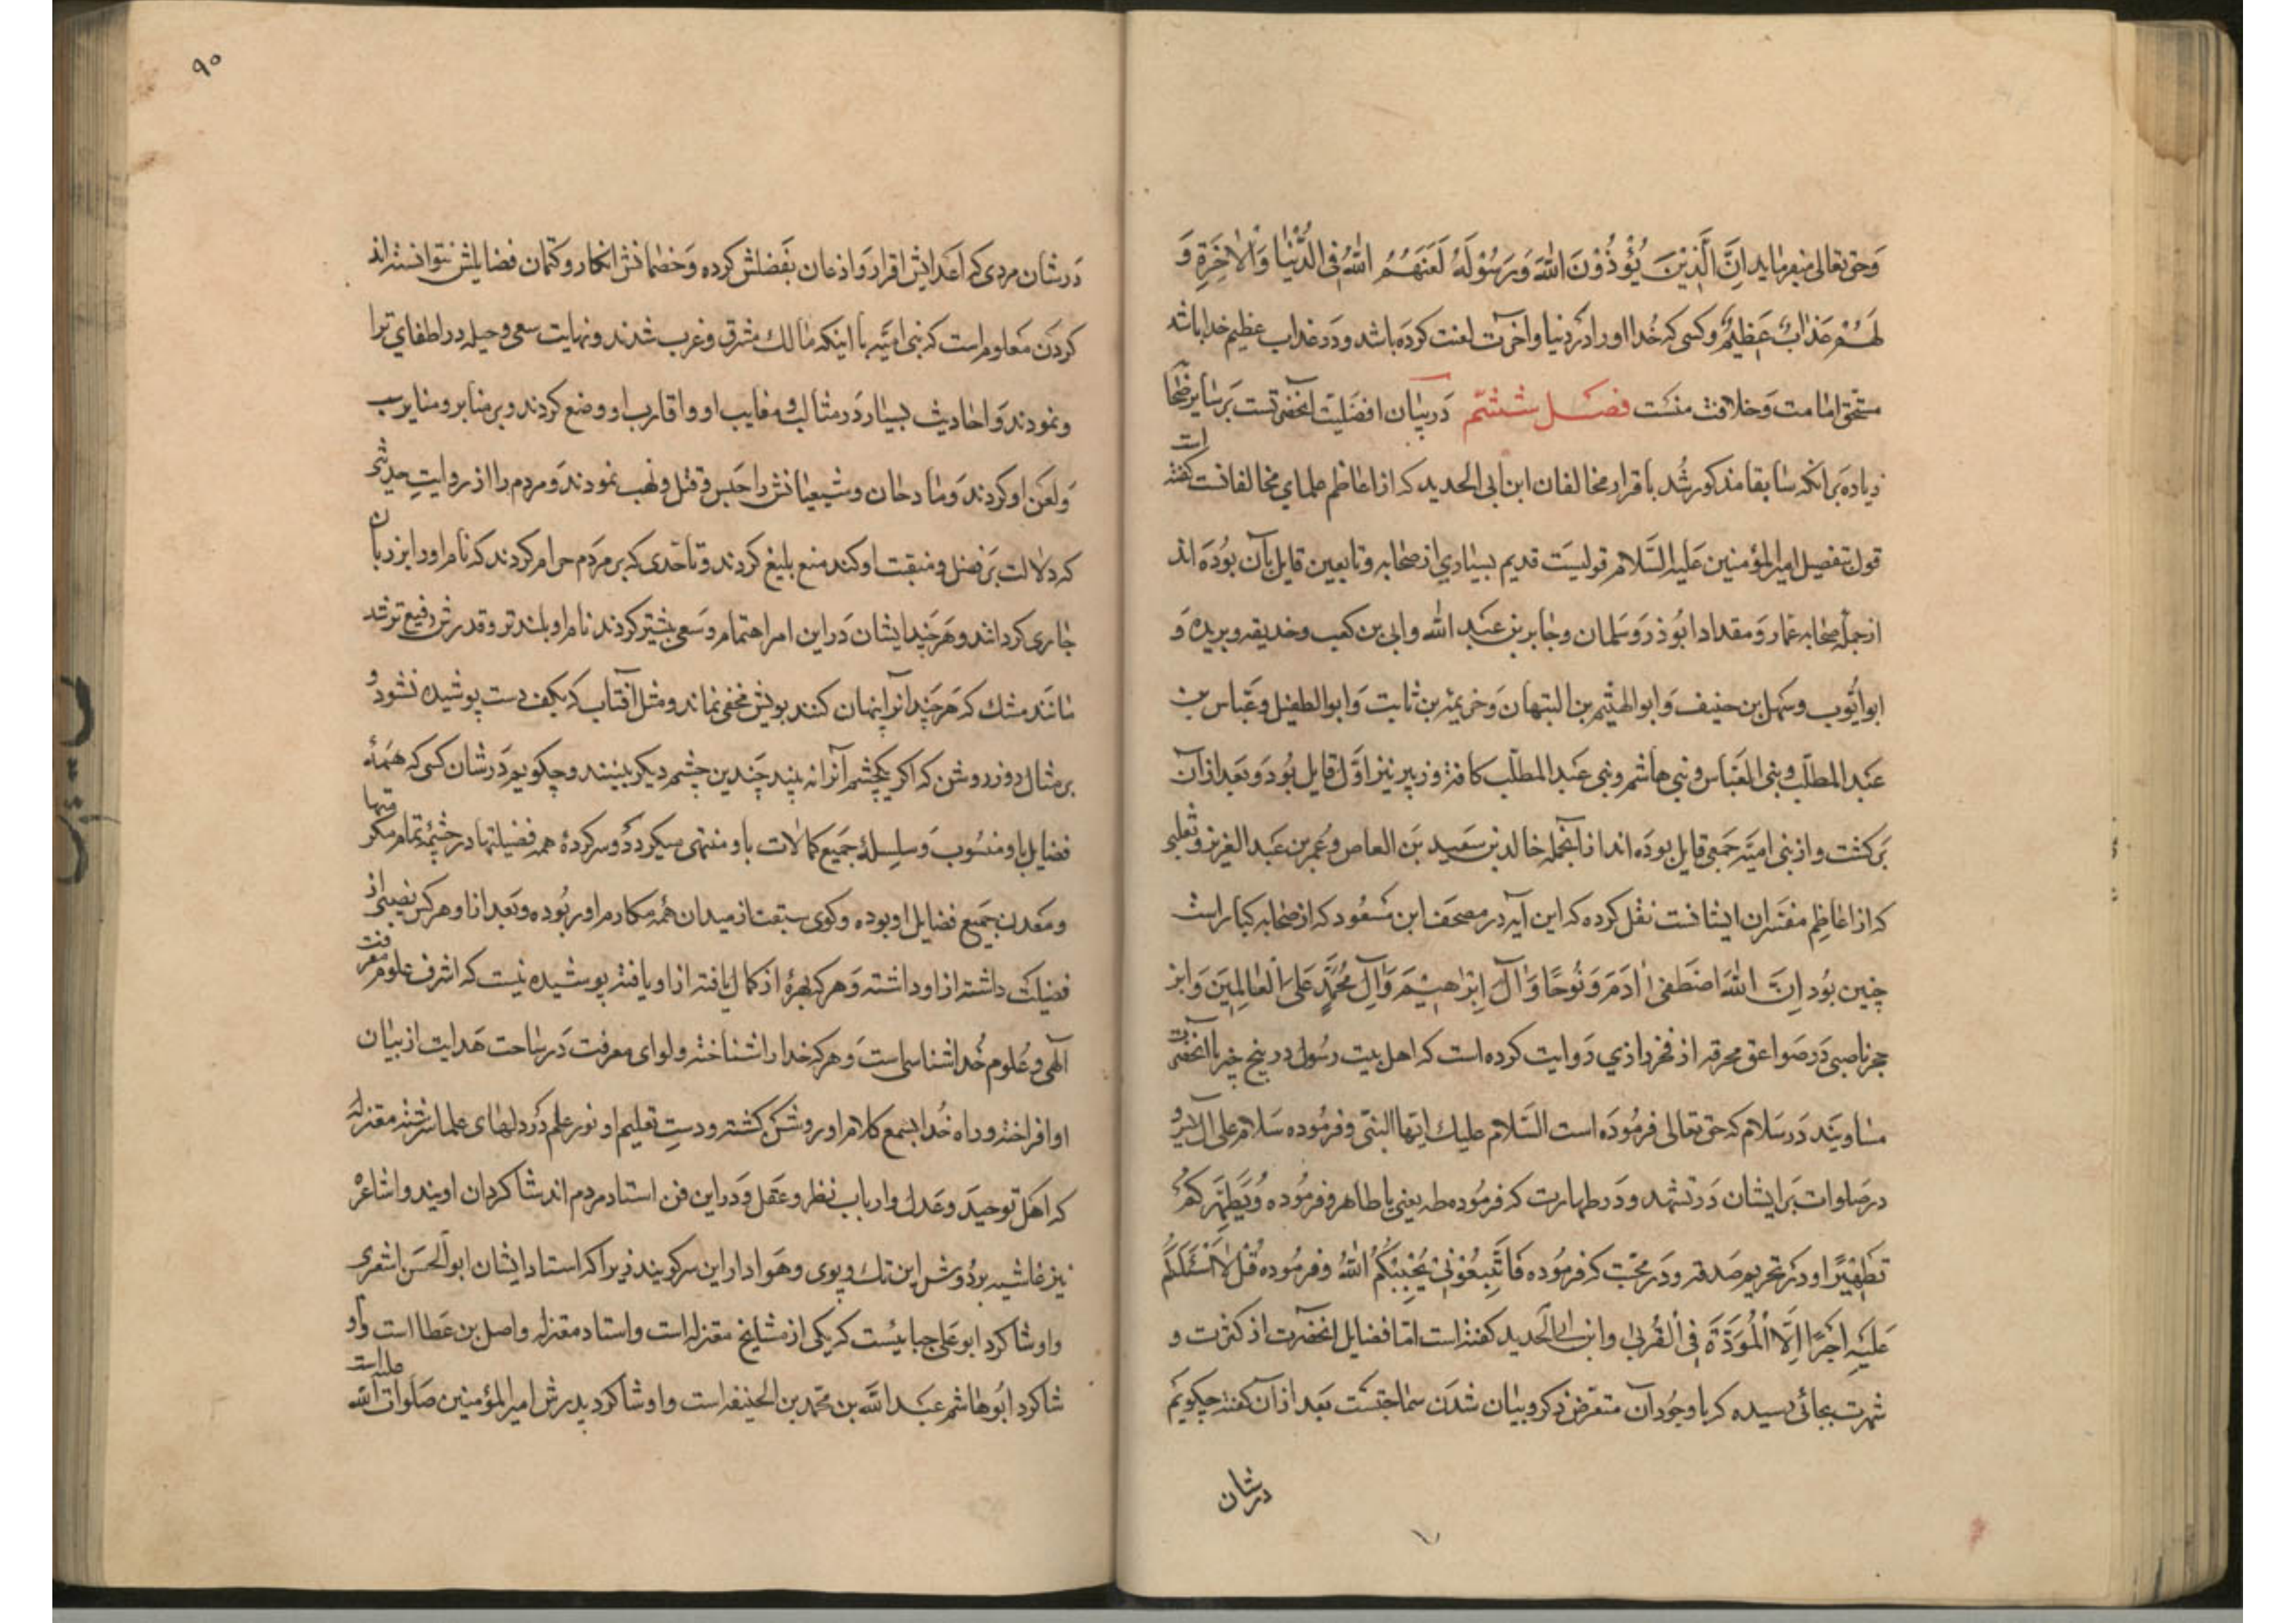 وحق تعالی میفرماید اِنَّ الَّذِیْنَ یُؤْذُوْنَ اللهَ وَرَسُوْلَهُ لَعَنَهُمُ اللهُ فِی الدُّنْیَا وَالْاٰخِرَةِ وَ
لَهُمْ عَذَابٌ عَظِیْمٌ وکسی که خدا او را در دنیا و آخرت لعنت کرده باشد و در عذاب عظیم خدا باشد
مستحق امامت و خلافت منست فصل ششم در بیان افضلیت آنحضرتست بر سایر صحابا
زیاده بر آنکه سابقا مذکور شد باقرار مخالفان ابن ابی الحدید که از اعاظم علمای مخالفانست گفته است
قول بتفضیل امیرالمؤمنین علیه السلام قولیست قدیم بسیاری از صحابه و تابعین قایل بآن بوده اند
از جمله صحابه عمار و مقداد ابوذر و سلمان و جابر بن عبد الله وابی بن کعب و حذیفه و بریده و
ابو ایوب و سهل بن حنیف و ابو الهیثم بن التیهان و خزیمه بن ثابت و ابو الطفیل و عباس بن
عبد المطلب و بنی العباس و بنی هاشم و بنی عبد المطلب کافة و زبیر نیز اول قایل بود و بعد از آن
برکشت و از بنی امیه جمعی قایل بوده اند از آنجمله خالد بن سعید بن العاص و عمر بن عبد العزیز و ثعلبی
که از اعاظم مفسران ایشانست نقل کرده که این آیه در مصحف ابن مسعود که از صحابه کبار است
چنین بود اِنَّ اللهَ اصْطَفٰی اٰدَمَ وَنُوْحًا وَاٰلَ اِبْرٰهِیْمَ وَاٰلَ مُحَمَّدٍ عَلَی الْعَالَمِیْنَ وابن
حجر ناصبی در صواعق محرقه از فخر رازی روایت کرده است که اهل بیت رسول در پنج چیز با آنحضرت
مساویند در سلام که حق تعالی فرموده است السلام علیک ایها النبی و فرموده سلام علی آل یس و
در صلوات بر ایشان در تشهد و در طهارت که فرموده طه یعنی یا طاهر و فرموده وَیُطَهِّرَکُمْ
تَطْهِیْرًا و در تحریم صدقه و در محبت که فرموده فَاتَّبِعُوْنِیْ یُحْبِبْکُمُ اللهُ و فرموده قُلْ لَا اَسْئَلُکُمْ
عَلَیْهِ اَجْرًا اِلَّا الْمَوَدَّةَ فِی الْقُرْبٰی وابن ابی الحدید کفته است اما فضایل آنحضرت از کثرت و
شهرت بجائی رسیده که با وجود آن متعرض ذکر و بیان شدن سماجتست بعد از آن کفته چکویم
درشان
۹۰
در شان مردی که اعدایش اقرار و اذعان بفضلش کرده و خصمانش انکار و کتمان فضایلش نتوانسته اند
کردن معلوم است که بنی امیه با اینکه مالک مشرق و غرب شدند و نهایت سعی و حیله در اطفای
ونمودند و احادیث بسیار در مثالب و معایب او و اقارب او وضع کردند و بر منابر و منایر سب
ولعن او کردند و مادحان و شیعیانش را حبس و قتل و نهب نمودند و مردم را از روایت حدیثی
که دلالت بر فضل و منقبت او کند منع بلیغ کردند و تا حدی که بر مردم حرام کردند که نام او را بر زبان
جاری کردانند و هرچند ایشان در این امر اهتمام و سعی بیشتر کردند نام او بلندتر و قدرش رفیع تر شد
مانند مشک که هرچند آنرا پنهان کنند بویش مخفی نماند و مثل آفتاب که بکف دست پوشیده نشود و
بر مثال روز روشن که اکر یکچشم آنرا نه بیند چندین چشم دیکر ببینند و چکویم در شان کسی که همه
فضایل باو منسوب و سلسلۀ جمیع کمالات باو منتهی میکردد و سرکردۀ همه فضیلتها و سرچشمۀ تمام مکرمتها
ومعدن جمیع فضایل او بوده و کوی سبقت از میدان همۀ مکارم او ربوده و بعد از او هرکس نصیبی از
فضیلت داشته از او داشته و هرکه بهرۀ از کمال یافته از او یافته پوشیده نیست که اشرف علوم معرفت
آلهی و علوم خداشناسی است و هرکه خدا را شناخته ولوای معرفت در ساحت هدایت از بیان
او افراخته و راه خدا بسمع کلام او روشن کشته و دست تعلیم او نور علم در دلهای علما سرشته معتزله
که اهل توحید و عدل و ارباب نظر و عقل و در این فن استاد مردم اند شاکردان اویند و اشاعره
نیز غاشیه بردوش این تک و پوی و هوادار این سرکویند زیرا که استاد ایشان ابو الحسن اشعری
و او شاکرد ابو علی جبائیست که یکی از مشایخ معتزله است و استاد معتزله واصل بن عطا است و او
شاکرد ابو هاشم عبد الله بن محمد بن الحنیفه است و او شاکرد پدرش امیر المؤمنین صلوات الله علیه است